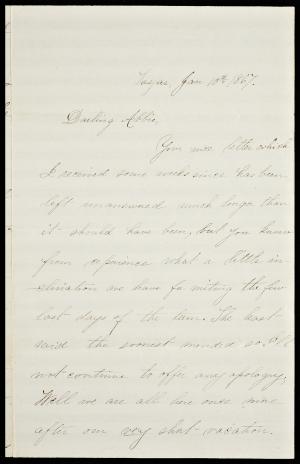 Togus, Jan 10th 1867.
Darling Abbie,
Your nice letter which
I received some weeks since has been
left unanswered much longer than
it should have been, but you know
from experience what a little in-
clination we have for writing the few
last days of the term. The least
said the soonest mended so I'll
not continue to offer any apology.
Well we are all here once more
after our very short vacation.